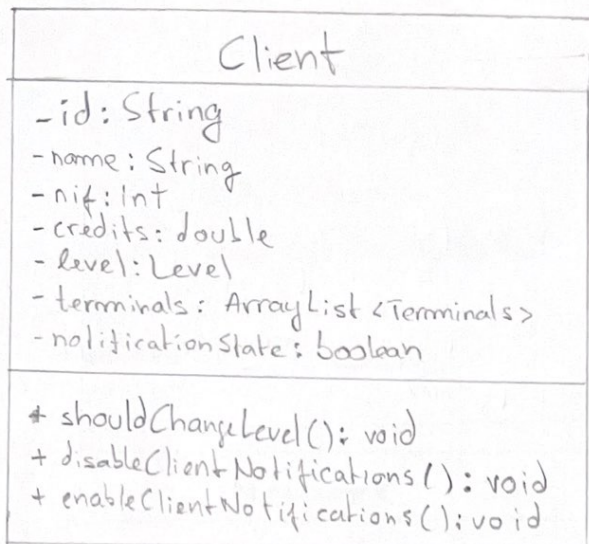 Client
-id: String
-name: String
-nif: Int
-credits: double
-level: Level
-terminals: ArrayList <Terminals>
-notificationState: boolean
+ shouldChangeLevel(): void
+ disableClientNotifications(): void
+ enableClientNotifications(): void